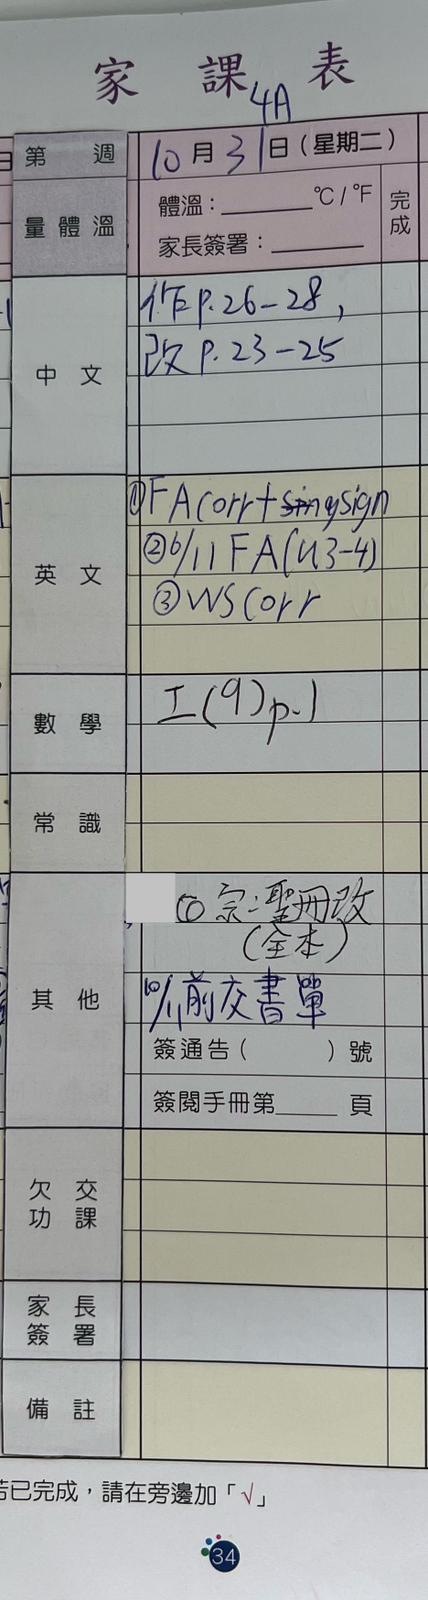 家 課 表
4A
第 週
10月31日(星期二)
量體溫
體溫：______°C / °F
家長簽署：______
完成
中 文
作 p.26-28,
改 p.23-25
英 文
①FA corr + sign
②6/11 FA(U3-4)
③WS Corr
數 學
工(9)p.1
常 識
其 他
宗:聖冊改
(全本)
10/11前交書單
簽通告( )號
簽閱手冊第____頁
欠 交
功 課
家 長
簽 署
備 註
若已完成，請在旁邊加「√」
34